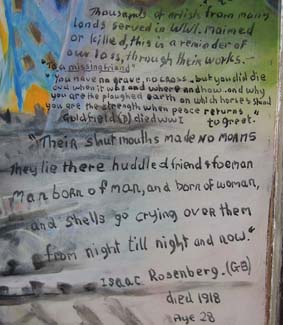 Thousands of artists from many
lands served in WWI. maimed
or killed, this is a reminder of
our loss, through their works.
"To a missing friend"
"You have no grave, no cross, but you did die
and when it was and where and how. and why
you are the ploughed earth on which horses stand
you are the strength when peace returns
Goldfeld (D) died WWI to greet.
"Their shut mouths made no moans
They lie there huddled friend & foeman
Man born of man, and born of woman,
and shells go crying over them
from night till night and now."
Isaac Rosenberg. (GB)
died 1918
Age 28